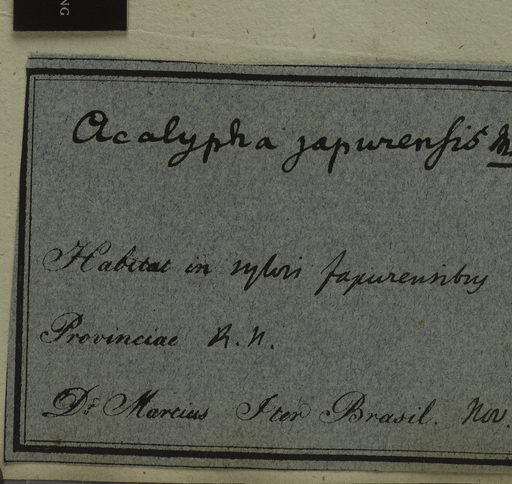 NG
Acalypha japurensis M.
Habitat in sylvis Japurensibus
Provinciae R. N.
Dr. Martius Iter Brasil. Nov.